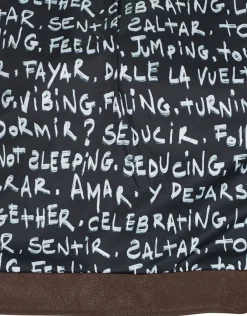 TOGETHER. CELEBRATING. L
R. SENTIR. SALTAR. TO
G. FEELING. JUMPING. TO
R. FAYAR. DARLE LA VUELT
G. VIBING. FAILING. TURNIN
DORMIR? SEDUCIR. FO
NOT SLEEPING. SEDUCING. F
RAR. AMAR Y DEJARS
GETHER. CELEBRATING. L
R. SENTIR. SALTAR. TO
FEELING. JUMPING